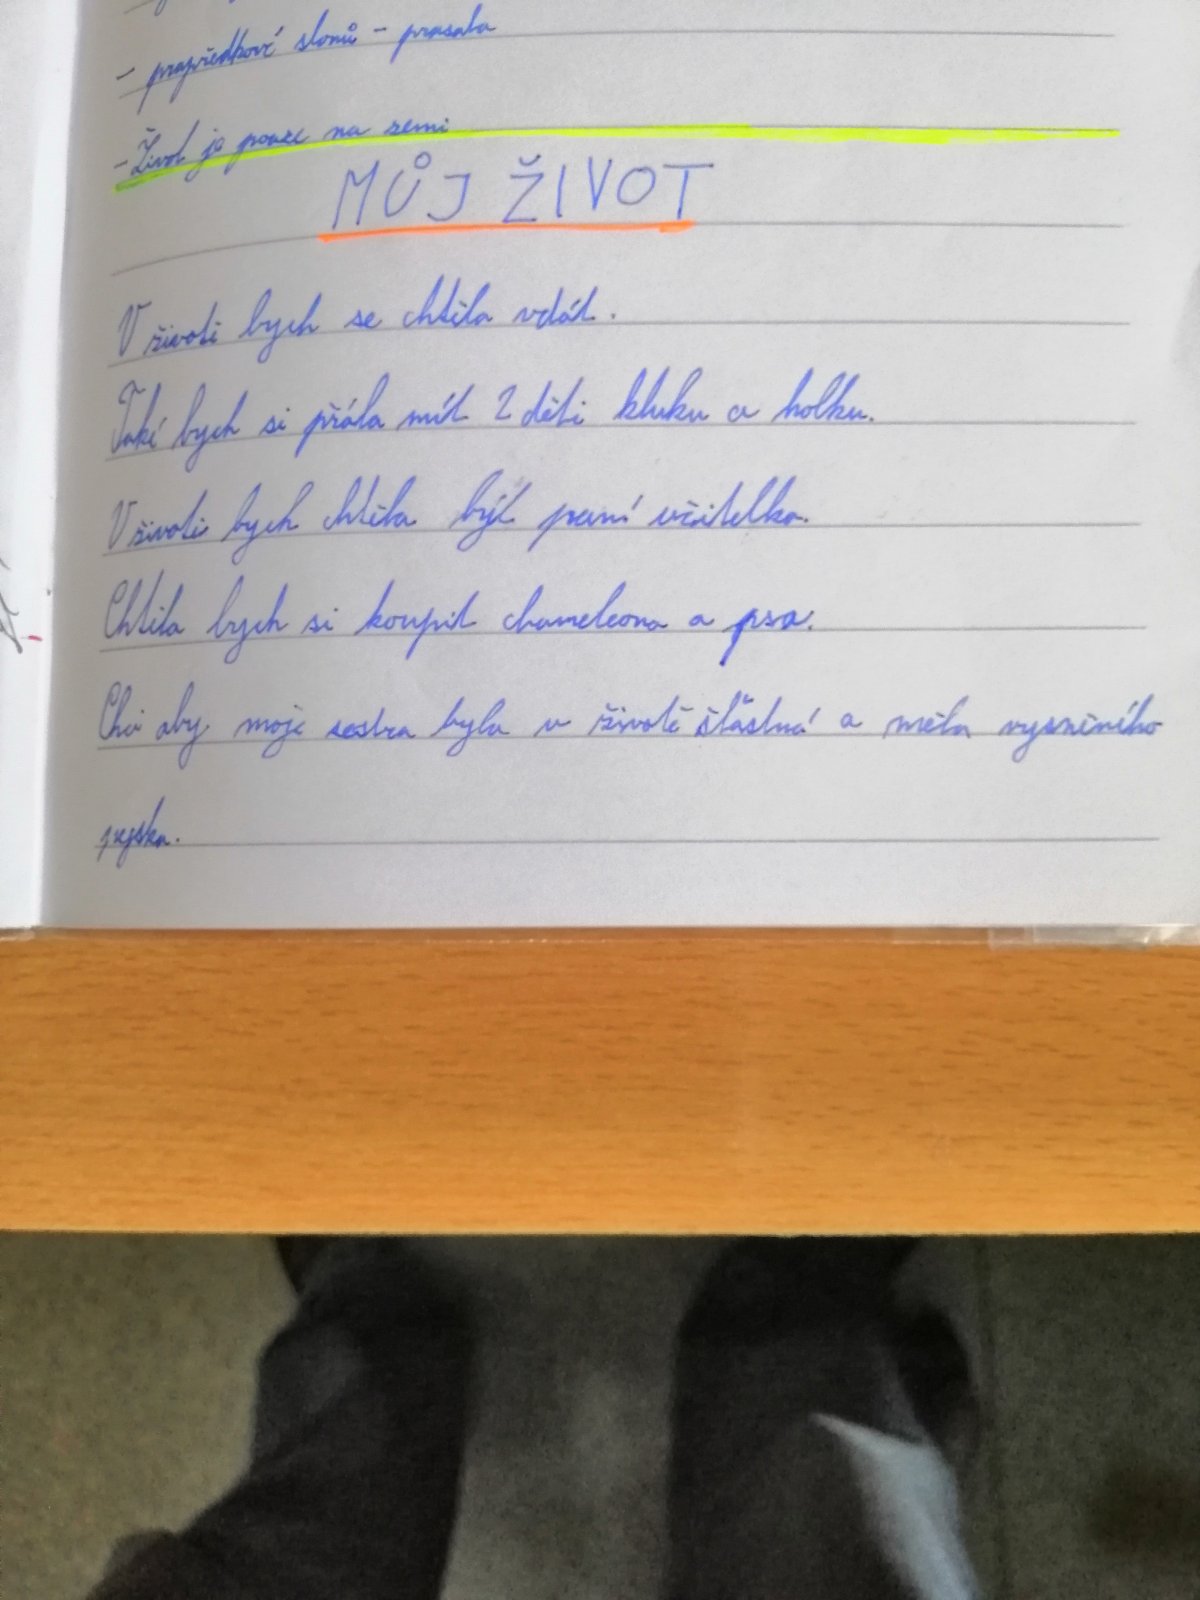 - prapředkové slonů - prasata
- Život je pouze na zemi
MŮJ ŽIVOT
V životě bych se chtěla vdát.
Také bych si přála mít 2 děti kluku a holku.
V životě bych chtěla být paní učitelka.
Chtěla bych si koupit chameleona a psa.
Chci aby moje sestra byla v životě šťastná a měla vysněného
pejska.